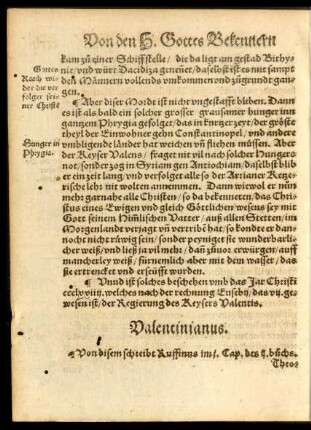 Von den H. Gottes Bekennern
kam zů einer Schiffstelle / die da ligt am gestad Bithy-
nie / vnd würt Dacidiza geneñet / daselbst ist es mit sampt
den Männern vollends vmkommen vnd zů grundt gan-
gen.
Gottes
Rach wi-
der die ver
folger sei-
ner Christē
¶ Aber diser Mordt ist nicht vngestrafft bliben. Dann
es ist als bald ein solcher grosser grausamer hunger inn
gangem Phrygia gefolget / das in kurtzer zeyt / der gröste
theyl der Einwohner gehn Constantinopel / vnd andere
vmbligende länder hat weichen vñ fliehen müssen. Aber
Hunger in
Phrygia.
der Keyser Valens / fraget nit vil nach solcher Hungers
not / sonder zog in Syriam gen Antiochiam / daselbst blib
er ein zeit lang / vnd verfolget alle so der Arrianer Ketze-
rische lehr nit wolten annemmen. Dann wiewol er nun
mehr garnahe alle Christen / so da bekenneten / das Chri-
stus eines Ewigen vnd gleich Göttlichen wesens sey mit
Gott seinem Him̃lischen Vatter / auß allen Stetten / im
Morgenlandt verjagt vñ vertribē hat / so kondte er dan-
nocht nicht rüwig sein / sonder peyniget sie wunderbarli-
cher weiß / vnd ließ ja vil mehr / dañ zuuor erwürgen / auff
mancherley weiß / fürnemlich aber mit dem wasser / das
sie ertrenckt vnd erseufft wurden.
¶ Vnnd ist solches beschehen vmb das Jar Christi
ccclxviij. welches nach der rechnung Eusebij / das vij. ge-
wesen ist / der Regierung des Keysers Valentis.
Valentinianus.
¶ Von disem schreibt Ruffinus im j. Cap. des ij. bůchs.
Theo